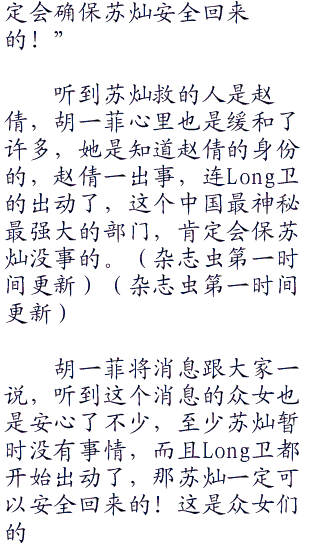 定会确保苏灿安全回来
的！”
听到苏灿救的人是赵
倩，胡一菲心里也是缓和了
许多，她是知道赵倩的身份
的，赵倩一出事，连Long卫
的出动了，这个中国最神秘
最强大的部门，肯定会保苏
灿没事的。（杂志虫第一时
间更新）（杂志虫第一时间
更新）
胡一菲将消息跟大家一
说，听到这个消息的众女也
是安心了不少，至少苏灿暂
时没有事情，而且Long卫都
开始出动了，那苏灿一定可
以安全回来的！这是众女们
的